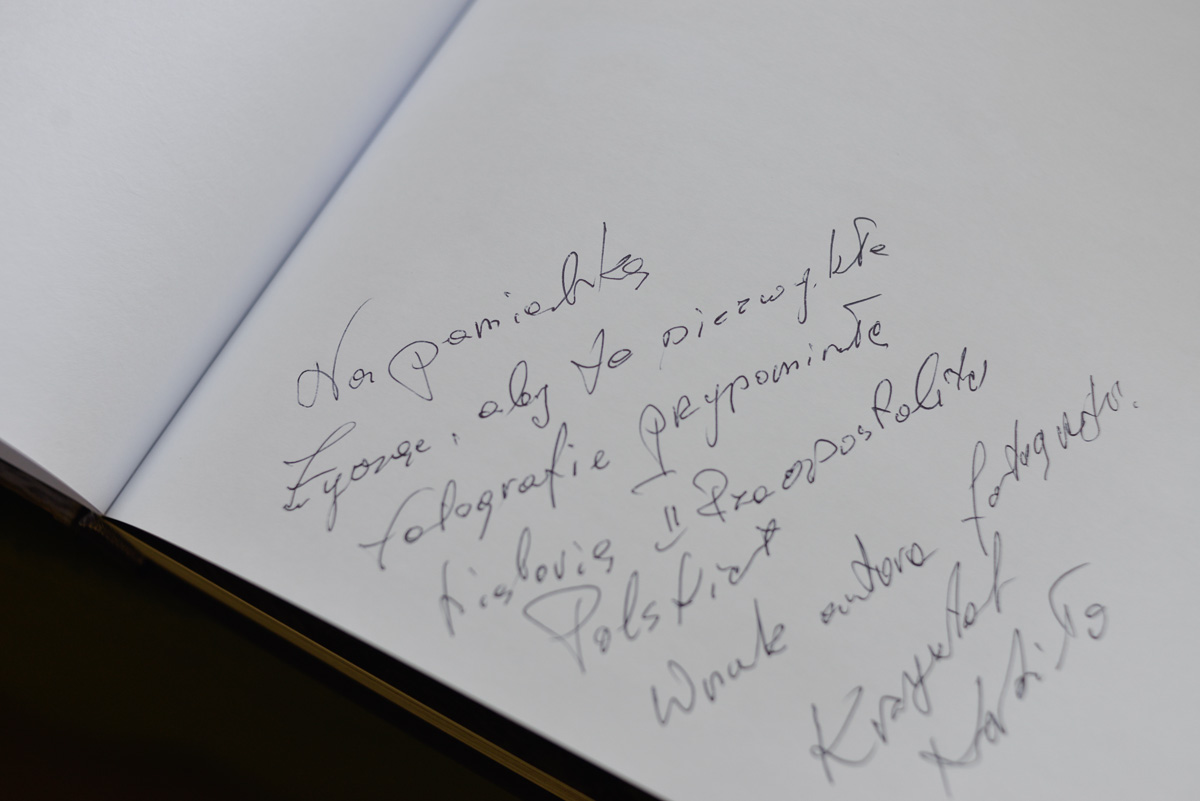 Na pamiątkę
Życzę, aby te niezwykłe
fotografie przypominały
historię II Rzeczpospolitej
Polskiej
Wnuk autora fotografii.
Krzysztof